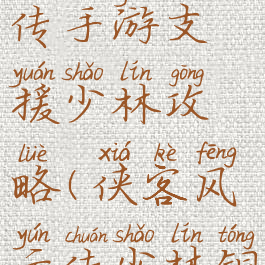 传手游支
yuán shǎo lín gōng
援少林攻
lüè xiá kè fēng
略(侠客风
yún chuán shǎo lín tóng
云传少林铜